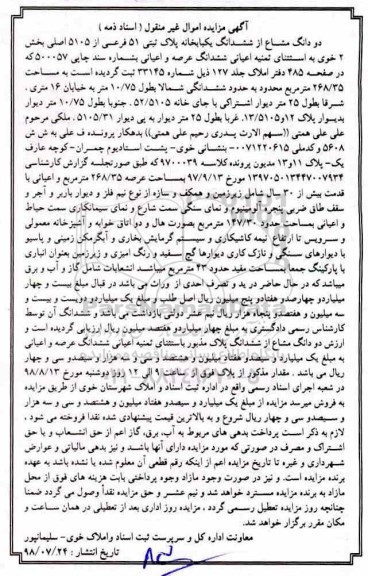 آگهی مزایده اموال غیر منقول ( اسناد ذمه )
دو دانگ مشاع از ششدانگ یکبابخانه پلاک ثبتی ۵۱ فرعی از ۵۱۰۵ اصلی بخش
۲ خوی به استثنای ثمنیه اعیانی ششدانگ عرصه و اعیانی بشماره سند چاپی ۵۰۰۰۵۷ که
در صفحه ۴۸۵ دفتر املاک جلد ۱۲۷ ذیل شماره ۳۳۱۴۵ ثبت گردیده است به مساحت
۲۶۸/۳۵ مترمربع محدود به حدود ششدانگی شمالا بطول ۱۰/۷۵ متر به خیابان ۱۶ متری .
شرقا بطول ۲۵ متر دیوار اشتراکی با جای خانه ۵۲/۵۱۰۵ . جنوبا بطول ۱۰/۷۵ متر دیوار
پلاک ۱۲و۱۳/۵۱۰۵. غربا بطول ۲۵ متر دیوار به پی دیوار ۵۱۰۵/۳۱ . ملکی مرحوم
علی علی همتی ((سهم الارث پدری رحیم علی همتی)) بدهکار پرونده ف علی به ش ش
۵۶۰۸ و کدملی ۰۰۷۱۲۲۰۶۱۵ -بنشانی خوی- پشت استادیوم چمران- کوچه عارف
یک- پلاک ۱۱و۱۳ مدیون پرونده کلاسه ۹۷۰۰۰۳۹ که طبق صورتجلسه گزارش کارشناسی
۱۳۹۷۰۵۰۱۳۴۴۷۰۰۷۹۳۴ مورخ ۹۷/۹/۱۳ بمساحت عرصه ۲۶۸/۳۵ مترمربع و اعیانی با
قدمت بیش از ۳۰ سال شامل زیرزمین و همکف ، سازه از نوع نیم فلز و دیوار باربر و آجر و
سقف طاق ضربی پنجره آلومینیوم و نمای سنگی سمت شارع و نمای سیمانکاری سمت حیاط
و اعیانی بمساحت حدود ۱۴۷/۳۰ مترمربع بصورت هال و دو اتاق خوابه و آشپزخانه معمولی
و سرویس تا ارتفاع نیمه کاشیکاری و سیستم گرمایش بخاری و آبگرمکن زمینی و پاسیو
با دیوارهای سنگی و نازک کاری دیوارها گچ سفید و رنگ آمیزی و زیرزمین بعنوان انباری
با پارکینگ جمعا بمساحت مفید حدود ۴۳ مترمربع میباشد انشعابات شامل گاز و آب و برق
میباشد که در حال حاضر در ید و تصرف احدی از وراث می باشد در قبال مبلغ بیست و چهار
میلیاردو چهارصدو هفتادو پنج میلیون ریال اصل طلب و مبلغ یک میلیاردو دویست و بیست و
سه میلیون و هفتصدو پنجاه هزار ریال نیم عشر دولتی بازداشت می باشد و ششدانگ آن توسط
کارشناس رسمی دادگستری به مبلغ چهار میلیاردو هفتصد میلیون ریال ارزیابی گردیده است و
ارزش دو دانگ مشاع از ششدانگ پلاک مذبور باستثنای ثمنیه اعیانی ششدانگ عرصه و اعیانی
به مبلغ یک میلیارد و سیصدو هفتاد میلیون و هشتصد و سی و سه هزار و سیصدو سی و چهار
ریال می باشد . مقدار مذکور از پلاک فوق از ساعت ۹ الی ۱۲ روز دوشنبه مورخ ۹۸/۸/۱۳
در شعبه اجرای اسناد رسمی واقع در اداره ثبت اسناد و املاک شهرستان خوی از طریق مزایده
به فروش میرسد مزایده از مبلغ یک میلیارد و سیصدو هفتاد میلیون و هشتصد و سی و سه هزار
و سیصدو سی و چهار ریال شروع و به بالاترین قیمت پیشنهادی شده نقدا فروخته می شود .
لازم به ذکر است پرداخت بدهی های مربوط به آب، برق، گاز اعم از حق انشعاب و یا حق
اشتراک و مصرف در صورتی که مورد مزایده دارای آنها باشند و نیز بدهی مالیاتی و عوارض
شهرداری و غیره تا تاریخ مزایده اعم از اینکه رقم قطعی آن معلوم شده یا نشده باشد به عهده
برنده مزایده است. و نیز در صورت وجود مازاد وجوه پرداختی بابت هزینه های فوق از محل
مازاد به برنده مزایده مسترد خواهد شد و نیم عشر و حق مزایده نقدا وصول می گردد ضمنا
چنانچه روز مزایده تعطیل رسمی گردد ، مزایده روز اداری بعد از تعطیلی در همان ساعت و
مکان مقرر برگزار خواهد شد.
معاونت اداره کل و سرپرست ثبت اسناد واملاک خوی- سلیمانپور
تاریخ انتشار : ۹۸/۰۷/۲۴